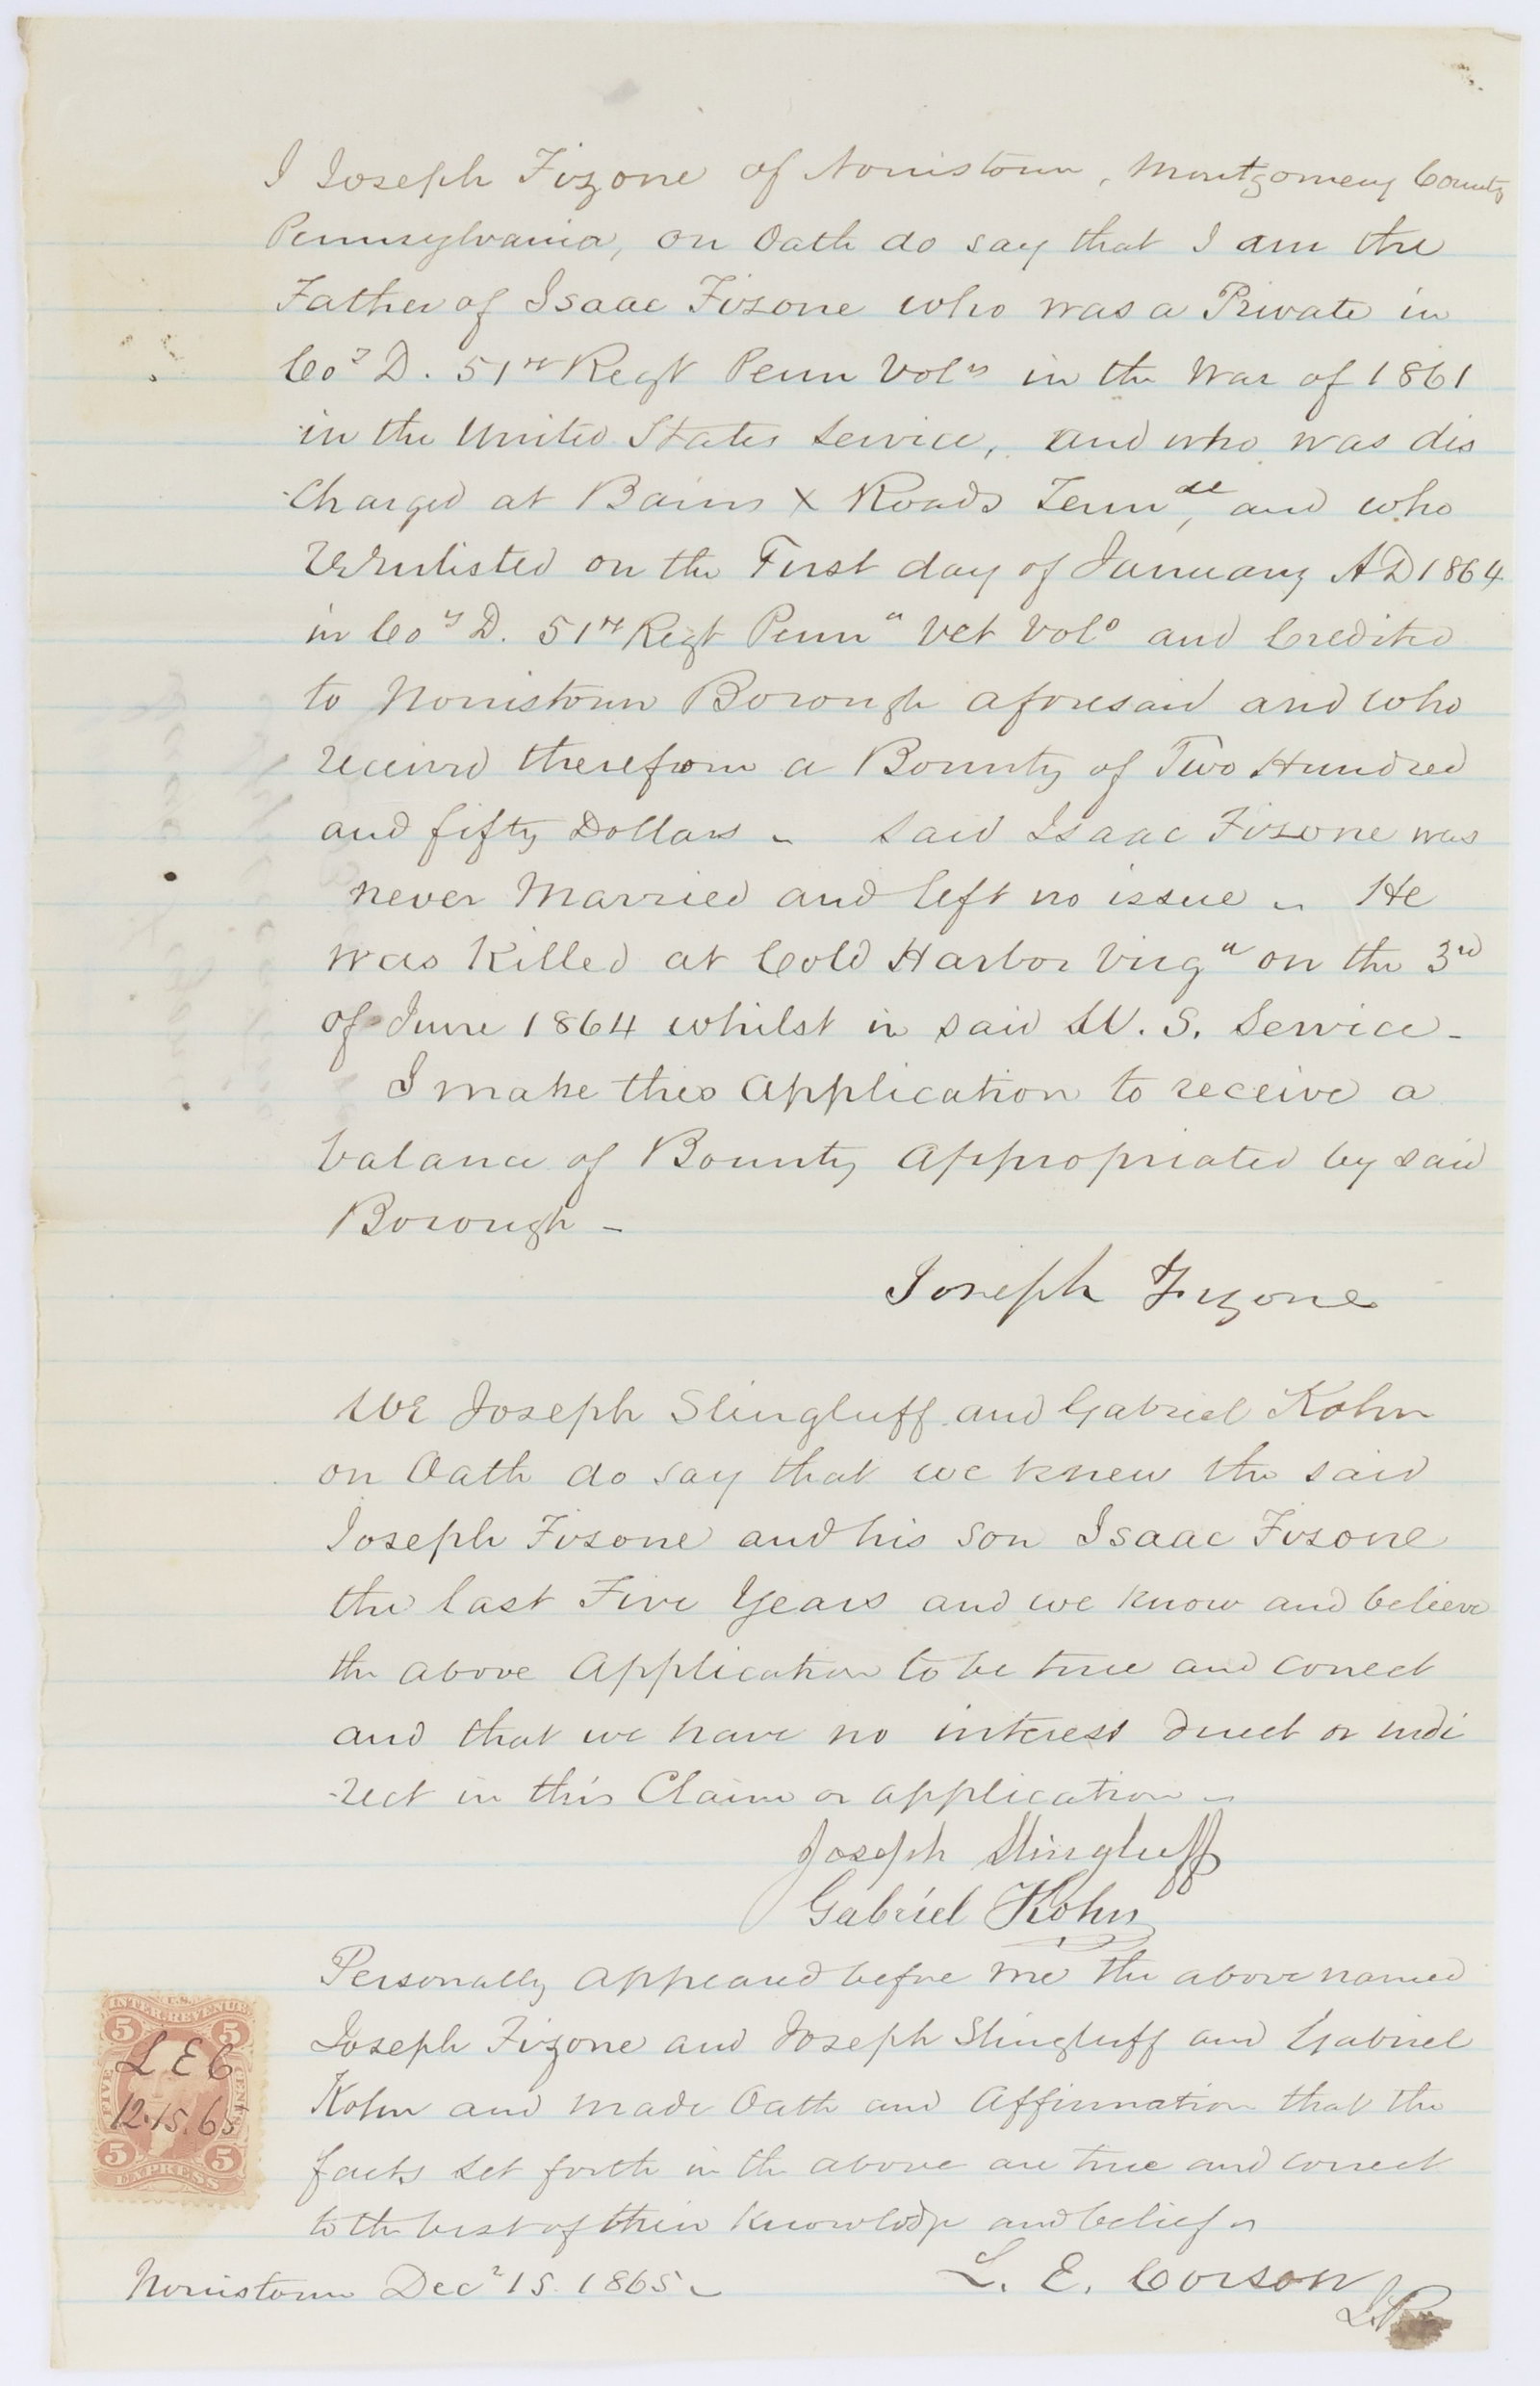 I Joseph Fizone of Norristown, Montgomery County
Pennsylvania, on Oath do say that I am the
Father of Isaac Fizone who was a Private in
Coy D. 51st Regt Penn Vols in the War of 1861
in the United States Service, and who was dis
charged at Bains X Roads Tenn and who
Reenlisted on the First day of January AD 1864
in Coy D. 51st Regt Penna Vet Vols and Credited
to Norristown Borough aforesaid and who
received therefrom a Bounty of Two Hundred
and fifty Dollars - Said Isaac Fizone was
never Married and left no issue - He
was Killed at Cold Harbor Virga on the 3rd
of June 1864 whilst in said U. S. Service -
I make this Application to receive a
balance of Bounty Appropriated by said
Borough -
Joseph Fizone
We Joseph Slingluff and Gabriel Kohn
on Oath do say that we knew the said
Joseph Fizone and his son Isaac Fizone
the last Five Years and we know and believe
the above Application to be true and correct
and that we have no interest direct or indi
-rect in this Claim or application -
Joseph Slingluff
Gabriel Kohn
Personally appeared before me the above named
Joseph Fizone and Joseph Slingluff and Gabriel
Kohn and made Oath and Affirmation that the
facts set forth in the above are true and correct
to the best of their Knowledge and belief -
Norristown Decr 15 1865 -
L. E. Corson
J.P.
U.S.
INTER. REVENUE
5 5
L E C
12.15.65
FIVE CENTS
5 5
EXPRESS